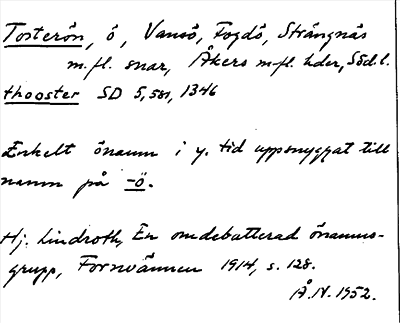 Tosterön, ö, Vansö, Fogdö, Strängnäs
m.fl. snar, Åkers m.fl. hder, Södl.
thooster SD 5,581, 1346
Enkelt önamn i y. tid uppsnyggat till
namn på -ö.
Hj. Lindroth, En omdebatterad önamns-
grupp, Fornvännen 1914, s. 128.
Å.N. 1952.